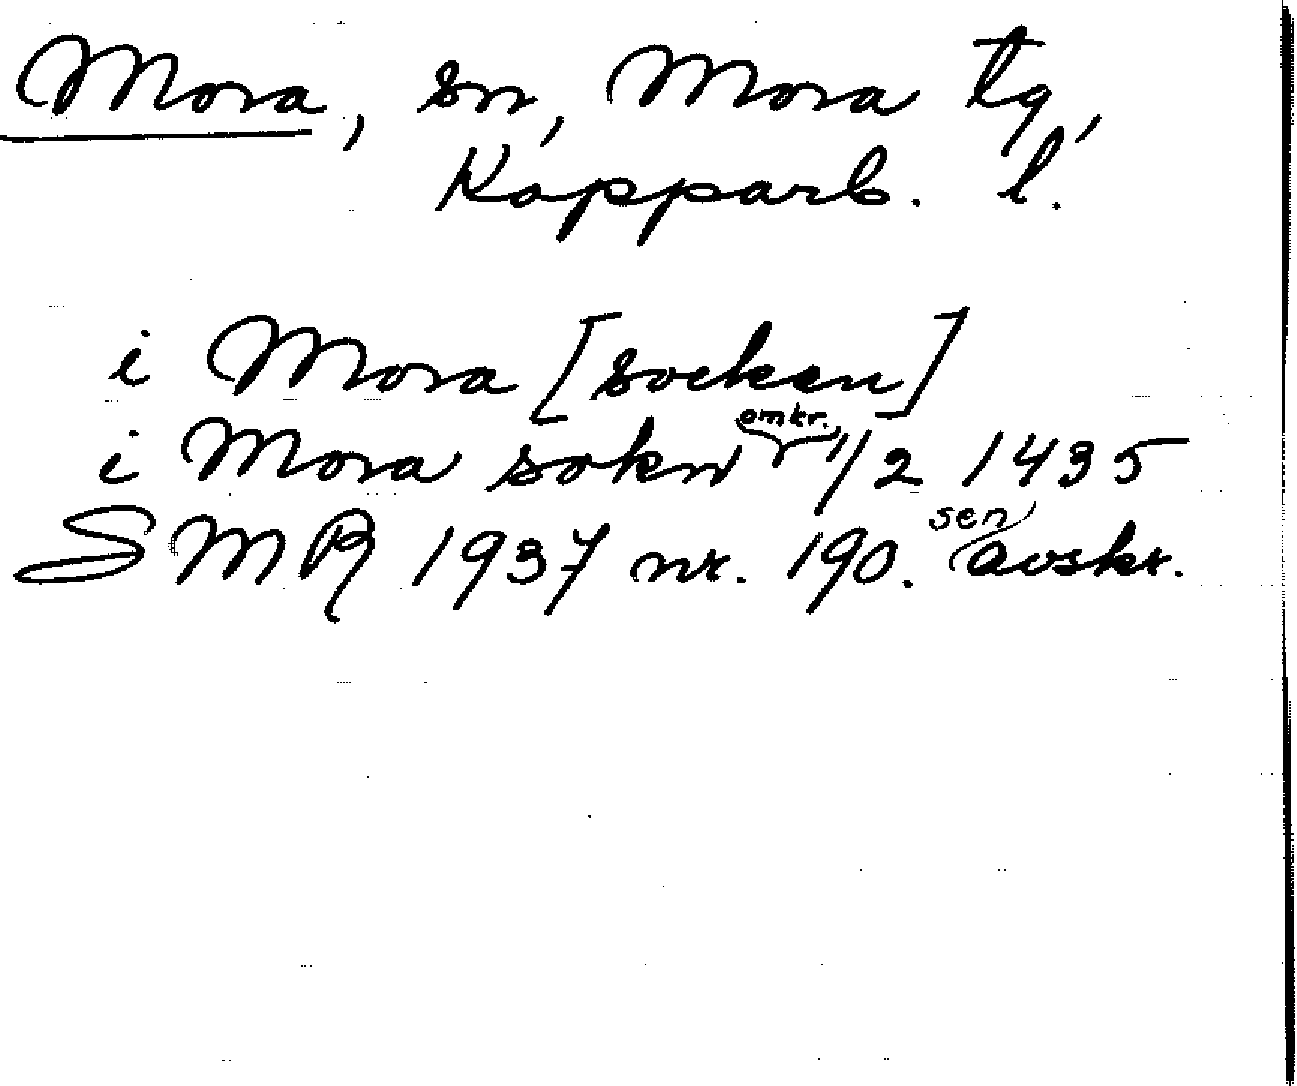 Mora, sn, Mora tg,
Kopparb. l.
i Mora [socken]
i Mora sokn omkr. 1/2 1435
SMR 1937 nr. 190. sen avskr.